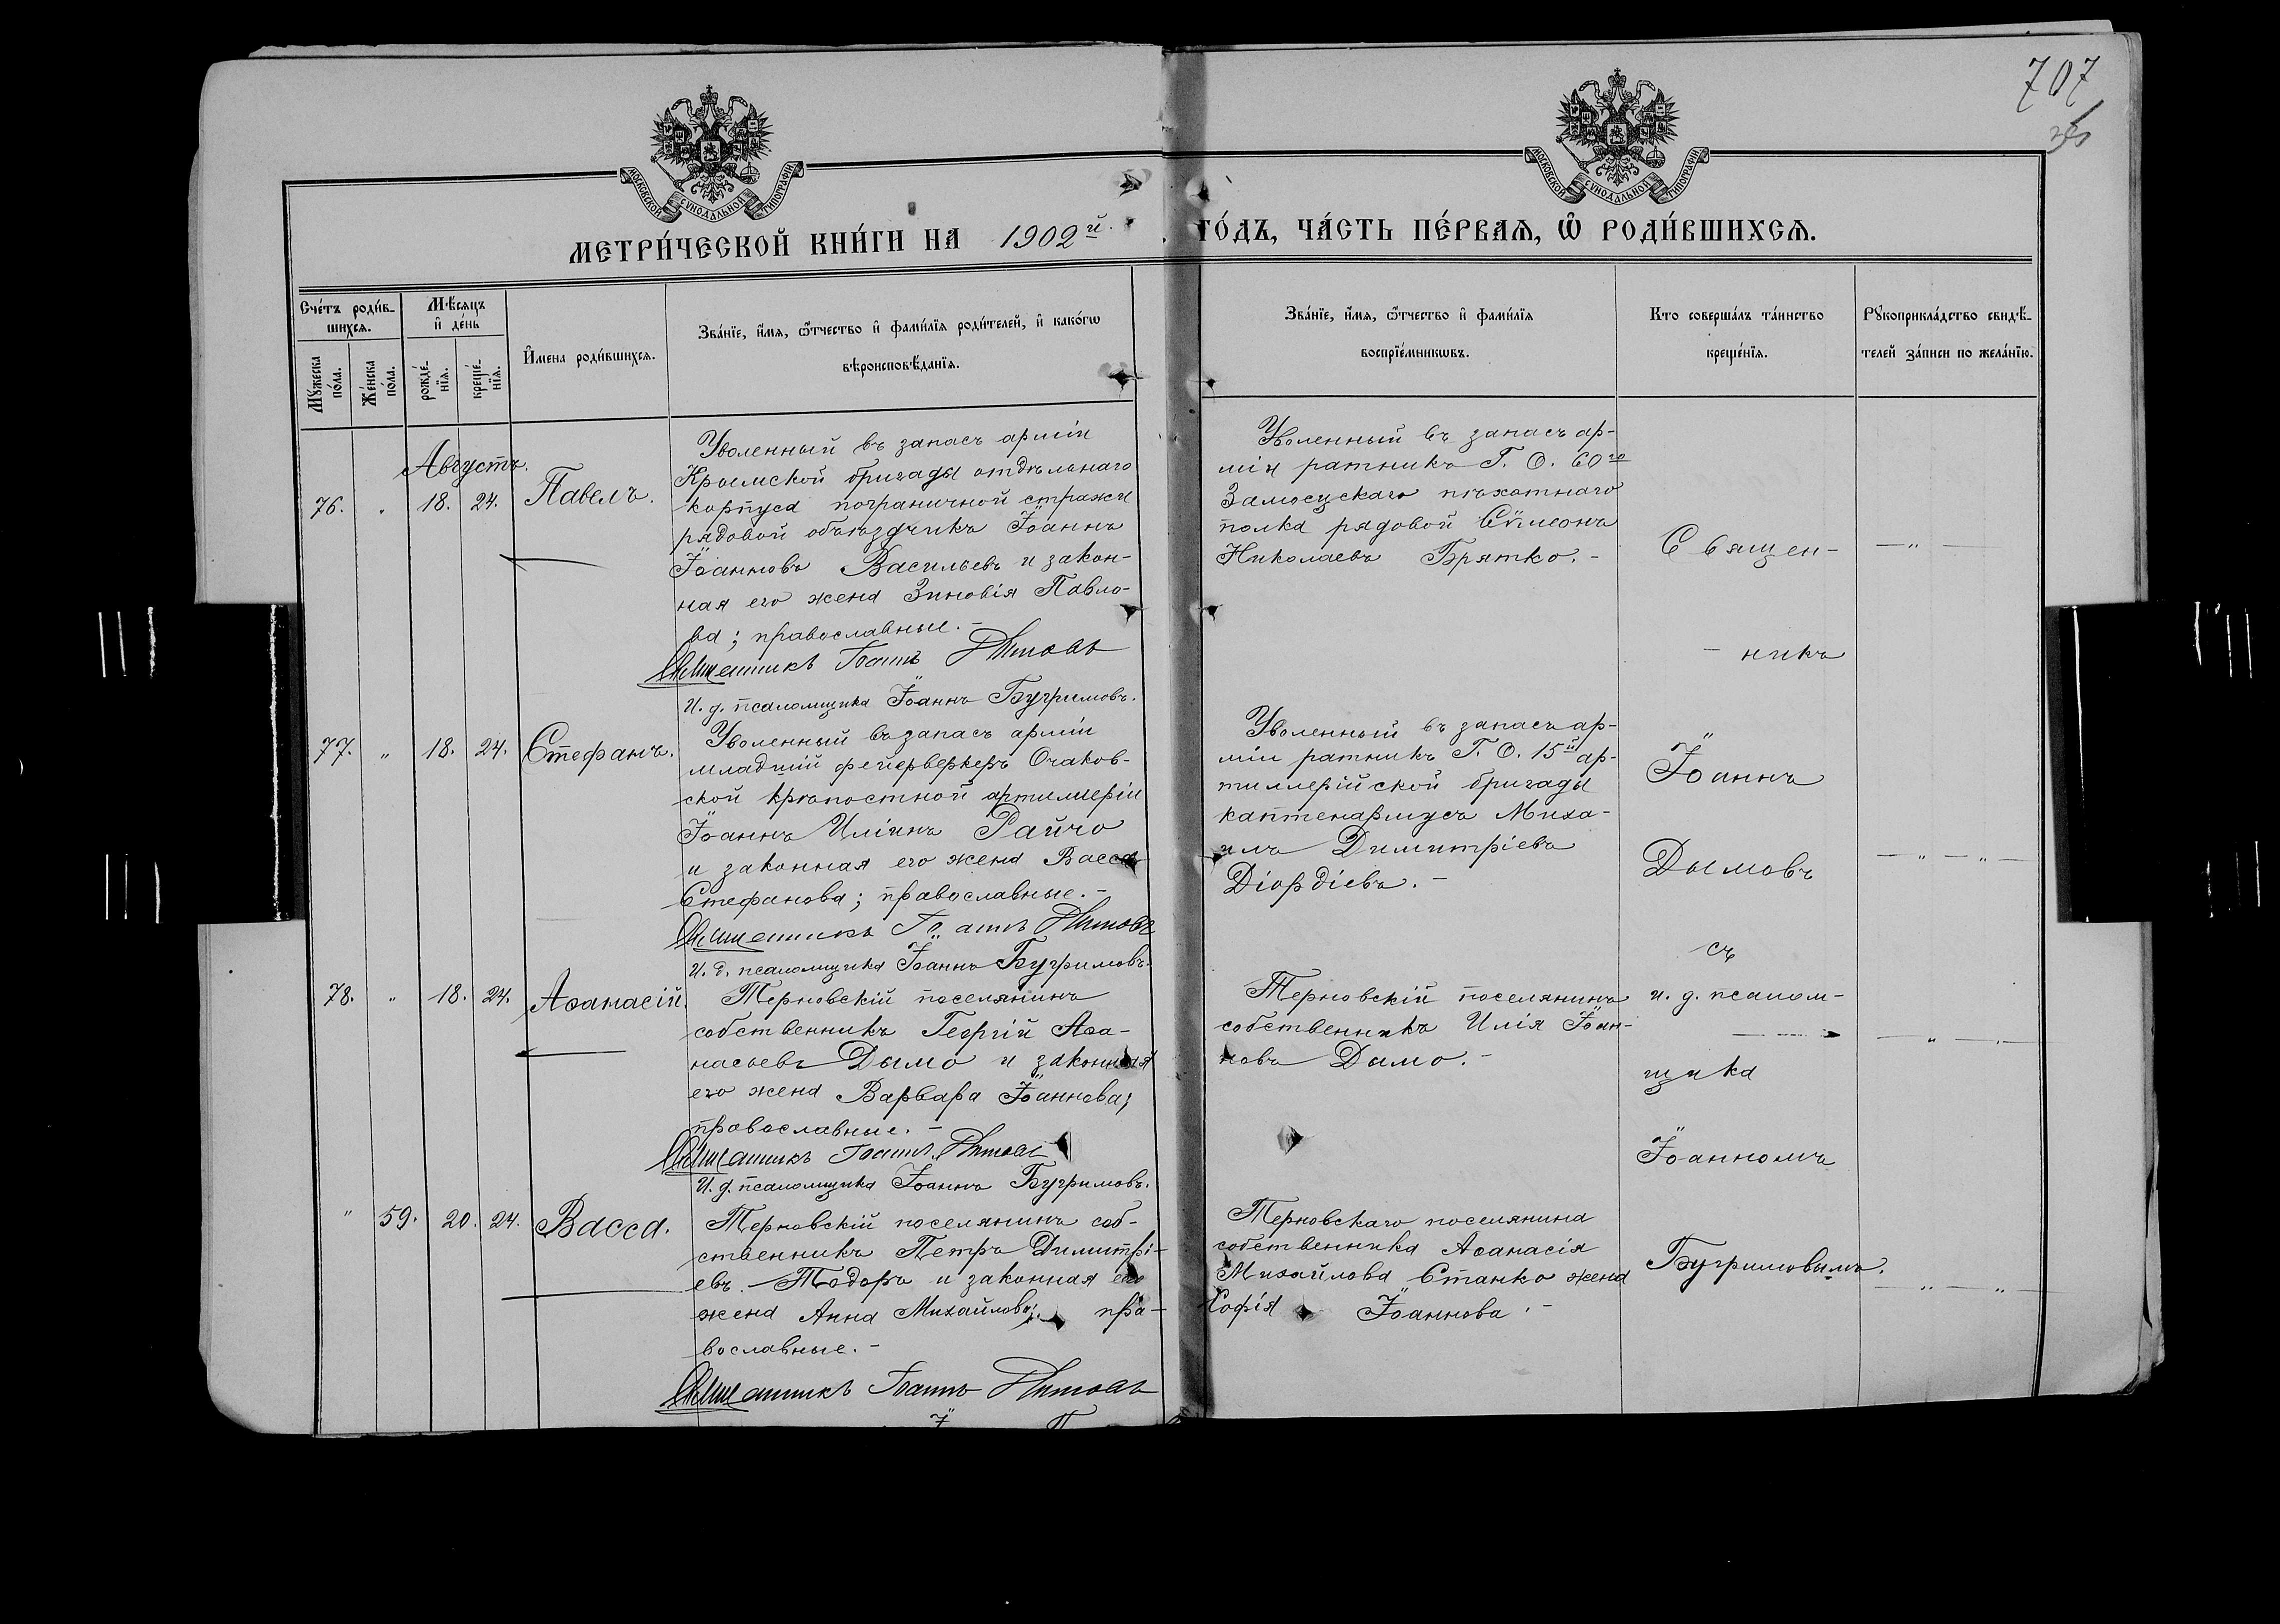 707
МОСКОВСКОЙ СѴНОДАЛЬНОЙ ТИПОГРАФІИ
МОСКОВСКОЙ СѴНОДАЛЬНОЙ ТИПОГРАФІИ
МЕТРИ́ЧЕСКОЙ КНИ́ГИ НА 1902й. ГО́ДЪ, ЧА́СТЬ ПЕ́РВАѦ, Ѡ҆ РОДИ́ВШИХСѦ.
Сче́тъ роди́в-
шихсѧ.
Му́жеска
по́ла.
Же́нска
по́ла.
Мѣ́сѧцъ
и҆ де́нь
рожде́-
нїѧ.
креще́-
нїѧ.
И҆мена роди́вшихсѧ.
Зва́нїе, и҆́мѧ, ѻ҆́тчество и҆ фами́лїѧ роди́телей, и҆ како́гѡ
вѣроисповѣ́данїѧ.
Зва́нїе, и҆́мѧ, ѻ҆́тчество и҆ фами́лїѧ
воспрїе́мникѡвъ.
Кто соверша́лъ та́инство
креще́нїѧ.
Рꙋкоприкла́дство свидѣ́-
телей за́писи по жела́нїю.
Августъ.
76. " 18. 24. Павелъ.
Уволенный въ запасъ арміи
Крымской бригады отдѣльнаго
корпуса пограничной стражи
рядовой объѣздчикъ Іоаннъ
Іоанновъ Васильевъ и закон-
ная его жена Зиновія Павло-
ва; православные. -
Священникъ Іоаннъ Дымовъ
И. д. псаломщика Іоаннъ Бугримовъ.
Уволенный въ запасъ ар-
міи ратникъ Г. О. 60го
Замосцскаго пѣхотнаго
полка рядовой Сѵмеонъ
Николаевъ Братко. -
77. " 18. 24. Стефанъ.
Уволенный въ запасъ арміи
младшій фейерверкеръ Очаков-
ской крѣпостной артиллеріи
Іоаннъ Иліинъ Райчо
и законная его жена Васса
Стефанова; православные. -
Священникъ Іоаннъ Дымовъ
И. д. псаломщика Іоаннъ Бугримовъ.
Уволенный въ запасъ ар-
міи ратникъ Г. О. 15й ар-
тиллерійской бригады
каптенармусъ Миха-
илъ Димитріевъ
Діордіевъ. -
78. " 18. 24. Аѳанасій.
Терновскій поселянинъ
собственникъ Георгій Аѳа-
насьевъ Дымо и законная
его жена Варвара Іоаннова;
православные. -
Священникъ Іоаннъ Дымовъ
И. д. псаломщика Іоаннъ Бугримовъ.
Терновскій поселянинъ
собственникъ Илія Іоан-
новъ Дымо. -
" 59. 20. 24. Васса.
Терновскій поселянинъ соб-
ственникъ Петръ Димитрі-
евъ Тодоръ и законная его
жена Анна Михайлова; пра-
вославные. -
Священникъ Іоаннъ Дымовъ
Терновскаго поселянина
собственника Аѳанасія
Михайлова Станко жена
Софія Іоаннова. -
Священ-
- никъ
Іоаннъ
Дымовъ
съ
и. д. псалом-
щика
Іоанномъ
Бугримовымъ.